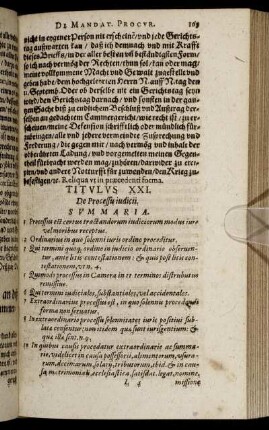 DE MANDAT. PROCVR. 169
nicht in eygener Person nit erscheinen/ vnd jede Gerichts-
tag außwarten kan / daß ich demnach vnd mit Krafft
dieses Brieffs/ in der aller besten vñ beståndigsten Form/
so ich nach vermög der Rechten/ thun sol/ kan oder mag/
meine vollkommene Macht vnd Gewalt zugestellt vnd
geben habe/ dem hochgelerten Herrn N. auff N. tag den
des Septemb. Oder ob derselbe nit ein Gerichtstag seyn
würd/ den Gerichtstag darnach/ vnd sonsten in der gan-
tzen Sache biß zu endtlichem Beschluß vnd Außtrag der-
selben an gedachtem Cammergericht/ wie recht ist/ zu er-
scheinen/ meine Defension schrifftlich oder mündlich für-
zubringen/ alle vnd jedere vermeynte Zusprechung vnd
Forderung/ die gegen mir/ nach vermög vnd inhalt der
Ladung/ vnd vorgemelten meinen Gegen-
theil fürbracht werden mag/ zuhören/ darwider zu exci-
pirn/ vnd andere Notturfft fürzuwenden/ den Krieg zu
befestigen/ &c. Reliqua vt in præcedenti forma.
TITVLVS XXI.
De Processu iudicii.
SVMMARIA.
1 Processus est cursus tractandorum iudiciorum modus iure
vel moribus receptus.
2 Ordinarius in quo solennis iuris ordine proceditur.
3 Qui termini quoq; ordine in iudicio ordinario obseruen-
tur, ante litis contestationem : & qui post litis con-
testationem, vt n. 4.
5 Quomodo processus in Camera in 11. terminos distribuatur
6 Qui termini iudiciales, substantiales, vel accidentales.
7 Extraordinarius processus est, in quo solennis procedendi
forma non seruatur.
8 In extraordinario processu solennitates iuris positiui sub-
latæ censentur, non itidem quæ sunt iurisgentium: &
quæ illa sint. n. 9.
10 In quibus causis procedatur extraordinarie ac summa-
rie, videlicet in causa possessorii, alimentorum, vsura-
rum, decimarum, salarij, tributorum, tbid. & in cau-
sa matrimoniali, ecclesiastica, satisdat. legat. nomine,
L 4 missione